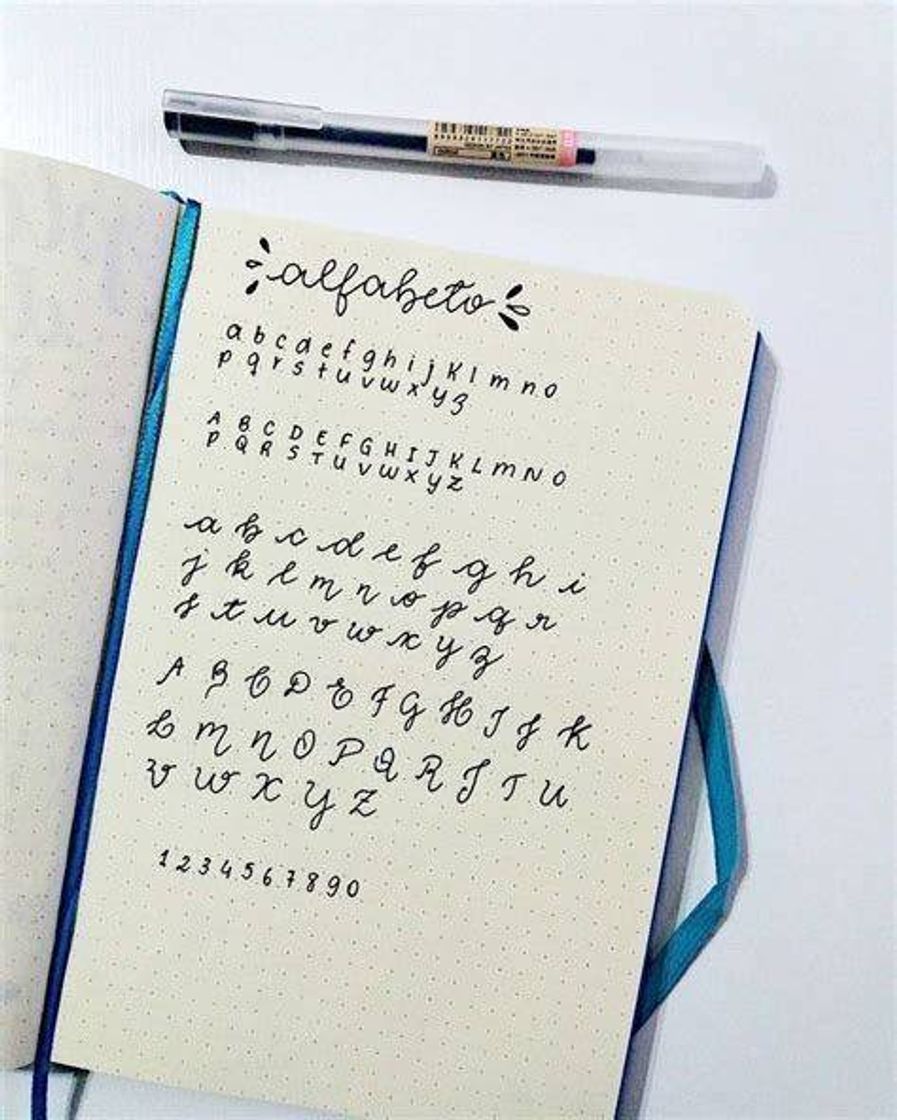 alfabeto
a b c d e f g h i j k l m n o
p q r s t u v w x y z
A B C D E F G H I J K L M N O
P Q R S T U V W X Y Z
a b c d e f g h i
j k l m n o p q r
s t u v w x y z
A B C D E F G H I J K
L M N O P Q R S T U
V W X Y Z
1 2 3 4 5 6 7 8 9 0